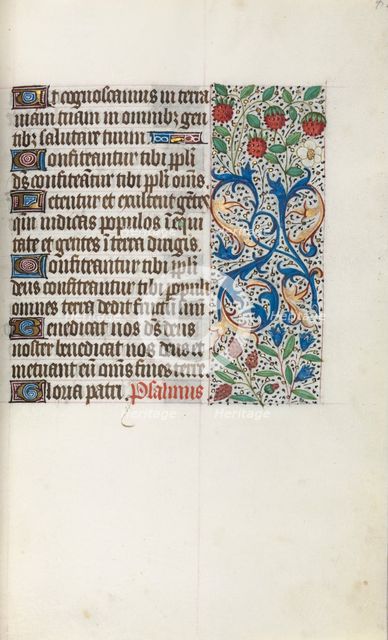 Ut cognoscamus in terra
viam tuam in omnibz gen
tibz salutare tuum.
Confiteantur tibi ppli
ds confiteātur tibi ppli om̄s.
Letentur et exultent gētes
qm iudicas populos ī equi
tate et gentes ī terra dirigis.
Confiteantur tibi ppli
deus confiteantur tibi populi
omnes terra dedit fructū suū
Benedicat nos ds deus
noster benedicat nos deus et
metuant eū om̄s fines terre.
Gloria patri. Psalmus
Heritage Heritage